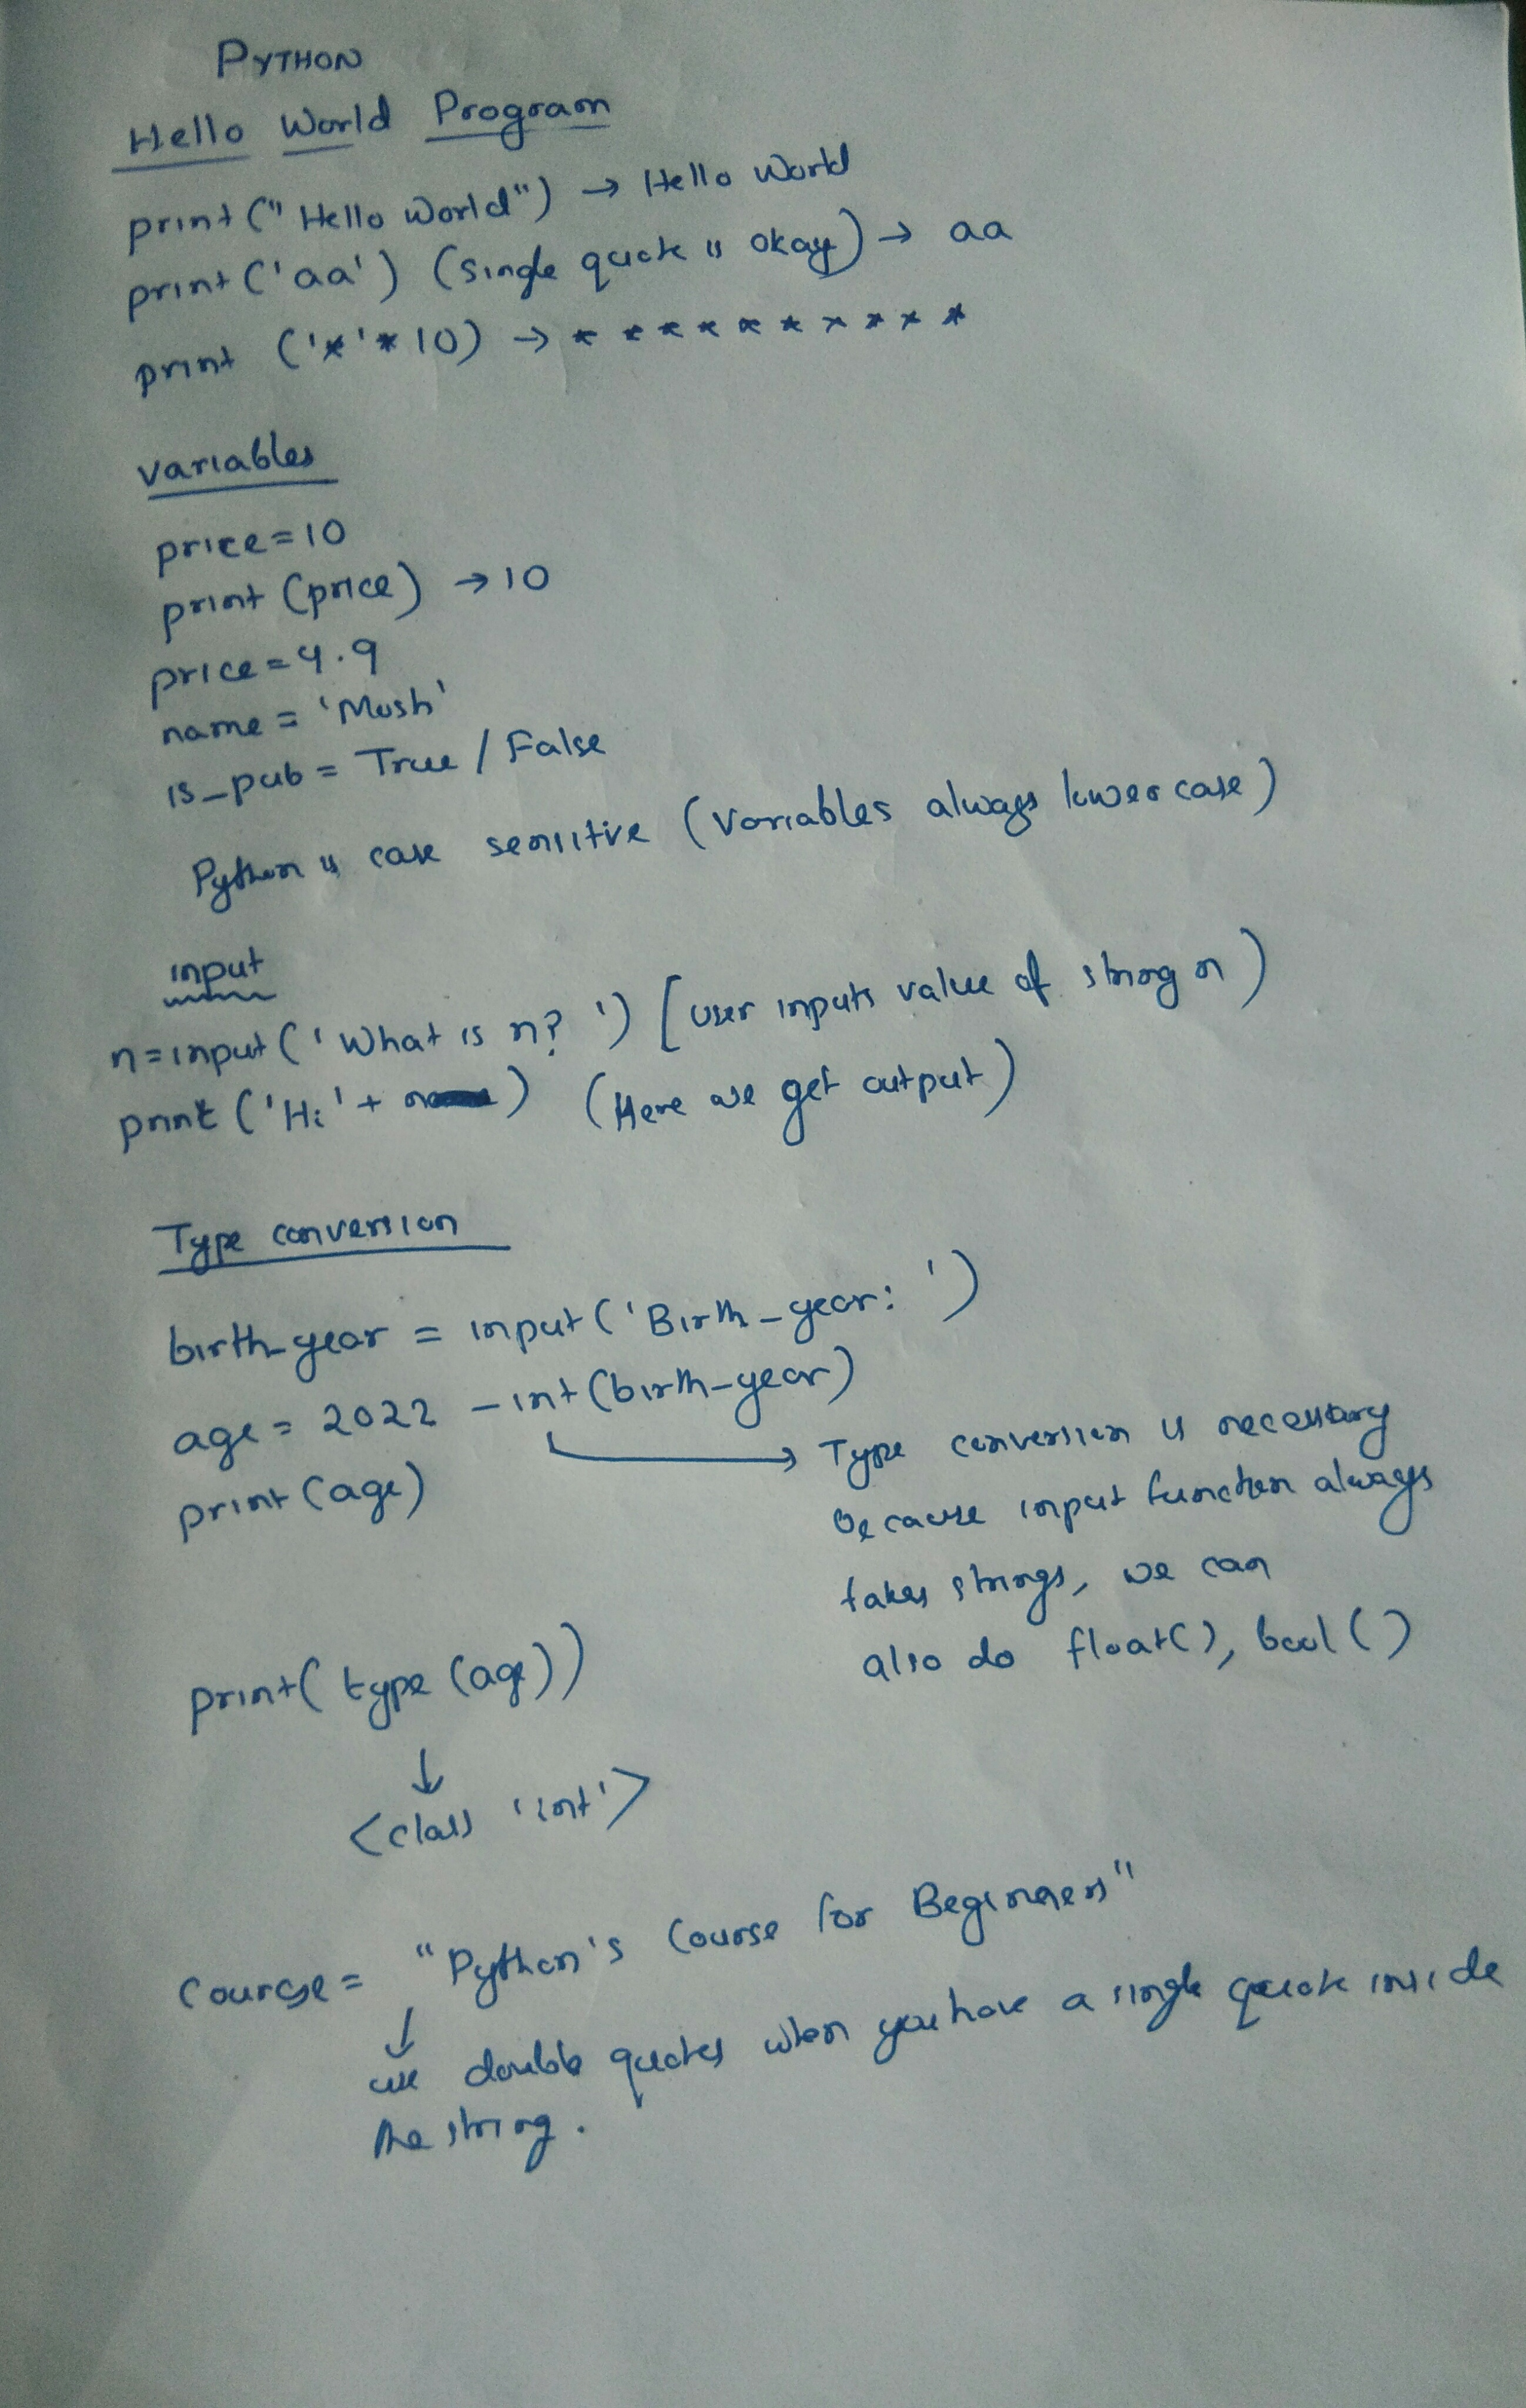 PYTHON
Hello World Program
print("Hello World") → Hello World
print('aa') (Single quote is okay) → aa
print ('*'*10) → * * * * * * * * * *
variables
price=10
print (price) → 10
price=4.9
name = 'Mosh'
is_pub = True / False
Python is case sensitive (Variables always lowercase)
input
n=input('What is n? ') [User inputs value of string n)
print ('Hi' + n) (Here we get output)
Type conversion
birth_year = input('Birth_year: ')
age = 2022 - int(birth_year)
→ Type conversion is necessary
print(age)
because input function always
takes strings, we can
also do float(), bool()
print( type (age))
↓
<class 'int'>
Course = "Python's Course for Beginners"
↓
use double quotes when you have a single quote inside
the string.